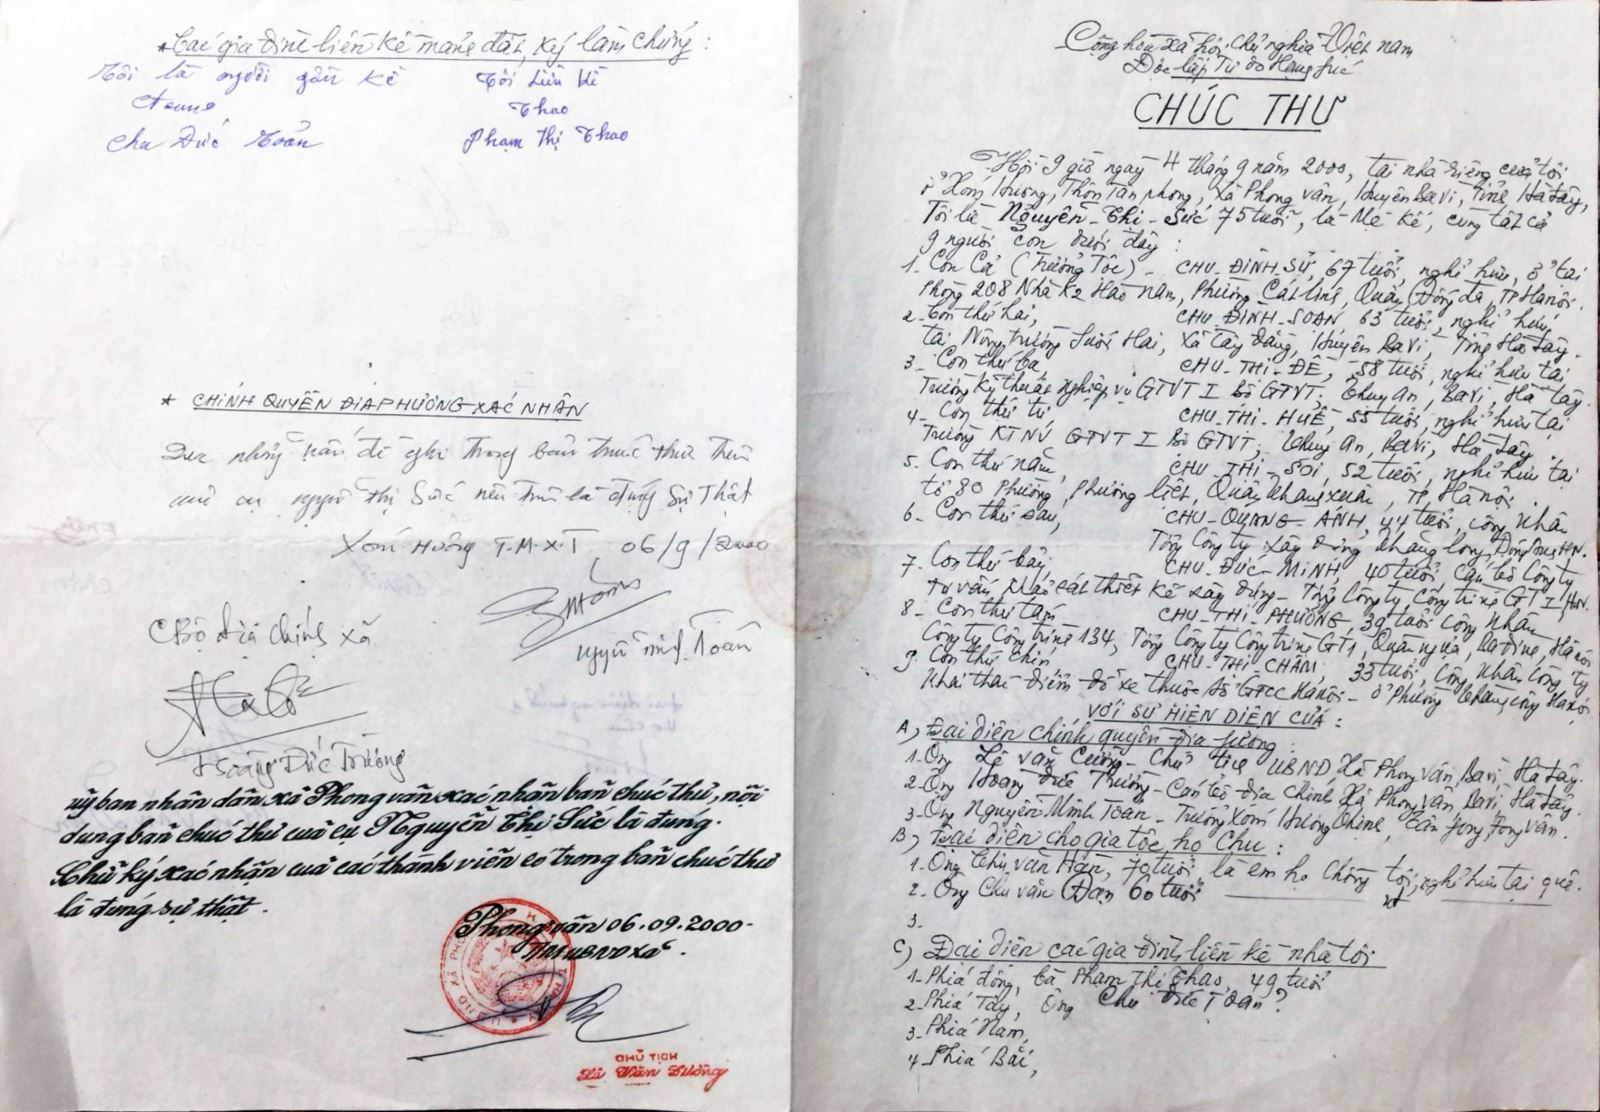 * Các gia đình liền kề mảnh đất, ký làm chứng :
Tôi là người gần kề
Chu Đức Toản
Tôi liền kề
Thao
Phạm Thị Thao
* CHÍNH QUYỀN ĐỊA PHƯƠNG XÁC NHẬN
Qua những vấn đề ghi trong bản trúc thư trên
của cụ nguyễn thị Sức nêu trên là đúng sự thật
Xóm Hương T.M.X.T 06/9/2000
nguyễn minh Toan
C Bộ địa chính xã
Hoàng Đức Trường
Ủy ban nhân dân xã Phong vân xác nhận bản chúc thư, nội
dung bản chúc thư của cụ Nguyễn Thị Sức là đúng.
Chữ ký xác nhận của các thành viên có trong bản chúc thư
là đúng sự thật.
Phong vân 06.09.2000-
TM UBND xã.
CHỦ TỊCH
Lê Văn Cường
Cộng hòa xã hội chủ nghĩa Việt nam
Độc lập Tự do Hạnh phúc
CHÚC THƯ
Hồi 9 giờ ngày 4 tháng 9 năm 2000, tại nhà riêng của tôi
ở Xóm Hương, Thôn Tân phong, Xã Phong vân, Huyện Ba vì, Tỉnh Hà tây,
Tôi là Nguyễn - Thị - Sức 75 tuổi, là Mẹ kế, cùng tất cả
9 người con dưới đây :
1. Con Cả (Trưởng Tộc) - CHU - ĐÌNH - SỬ, 67 tuổi, nghỉ hưu, ở tại
Phòng 208 Nhà K2 Hào nam, Phường Cát linh, Quận Đống đa, TP Hà nội.
2. Con thứ hai, CHU ĐÌNH - SOAN 63 tuổi, nghỉ hưu,
tại Nông trường Suối Hai, Xã Tây đằng, Huyện Ba Vì, Tỉnh Hà tây.
3. Con thứ ba, CHU - THỊ - ĐÊ, 58 tuổi, nghỉ hưu tại
Trường Kỹ thuật nghiệp vụ GTVT I Bộ GTVT; Thụy An, Ba Vì, Hà tây.
4. Con thứ tư CHU - THỊ - HUÊ, 55 tuổi, nghỉ hưu tại
Trường KTNV GTVT I Bộ GTVT; Thụy An, Ba Vì, Hà Tây.
5. Con thứ năm, CHU - THỊ - SOI, 52 tuổi, nghỉ hưu tại
tổ 80 Phường, Phương liệt, Quận Thanh xuân, TP. Hà nội.
6. Con thứ sáu, CHU - QUANG - ÁNH, 44 tuổi, công nhân
Tổng Công ty xây dựng thăng long, HN.
7. Con thứ bảy CHU - ĐỨC - MINH 40 tuổi, cán bộ Công ty
Tư vấn khảo sát thiết kế xây dựng - Tổng Công ty Công trình GT I HN.
8. Con thứ tám CHU - THỊ - PHƯƠNG 39 tuổi công nhân
Công ty Công trình 134, Tổng Công ty Công trình GT1, Quần ngựa, Ba đình, Hà nội
9. Con thứ chín CHU - THỊ CHÂM, 33 tuổi, Công nhân Công ty
Khai thác điểm đỗ xe thuộc sở GTCC Hà nội - ở Phường Hà nội
VỚI SỰ HIỆN DIỆN CỦA :
A) Đại diện chính quyền địa phương :
1. Ông Lê văn Cường - Chủ tịch UBND Xã Phong vân, Ba vì, Hà tây.
2. Ông Hoàng đức Trường - Cán bộ địa chính Xã Phong vân, Ba vì, Hà tây.
3. Ông Nguyễn Minh Toan - Trưởng Xóm Hương
B) Đại diện cho gia tộc họ Chu :
1. Ông Chu văn Hán, 70 tuổi, là em họ chồng tôi, nghỉ hưu tại quê.
2. Ông Chu văn Đạn 60 tuổi
3.
C) Đại diện các gia đình liền kề nhà tôi
1. Phía đông, bà Phạm Thị Thao, 49 tuổi
2. Phía Tây, Ông Chu đức Toản ?
3. Phía Nam,
4. Phía Bắc,